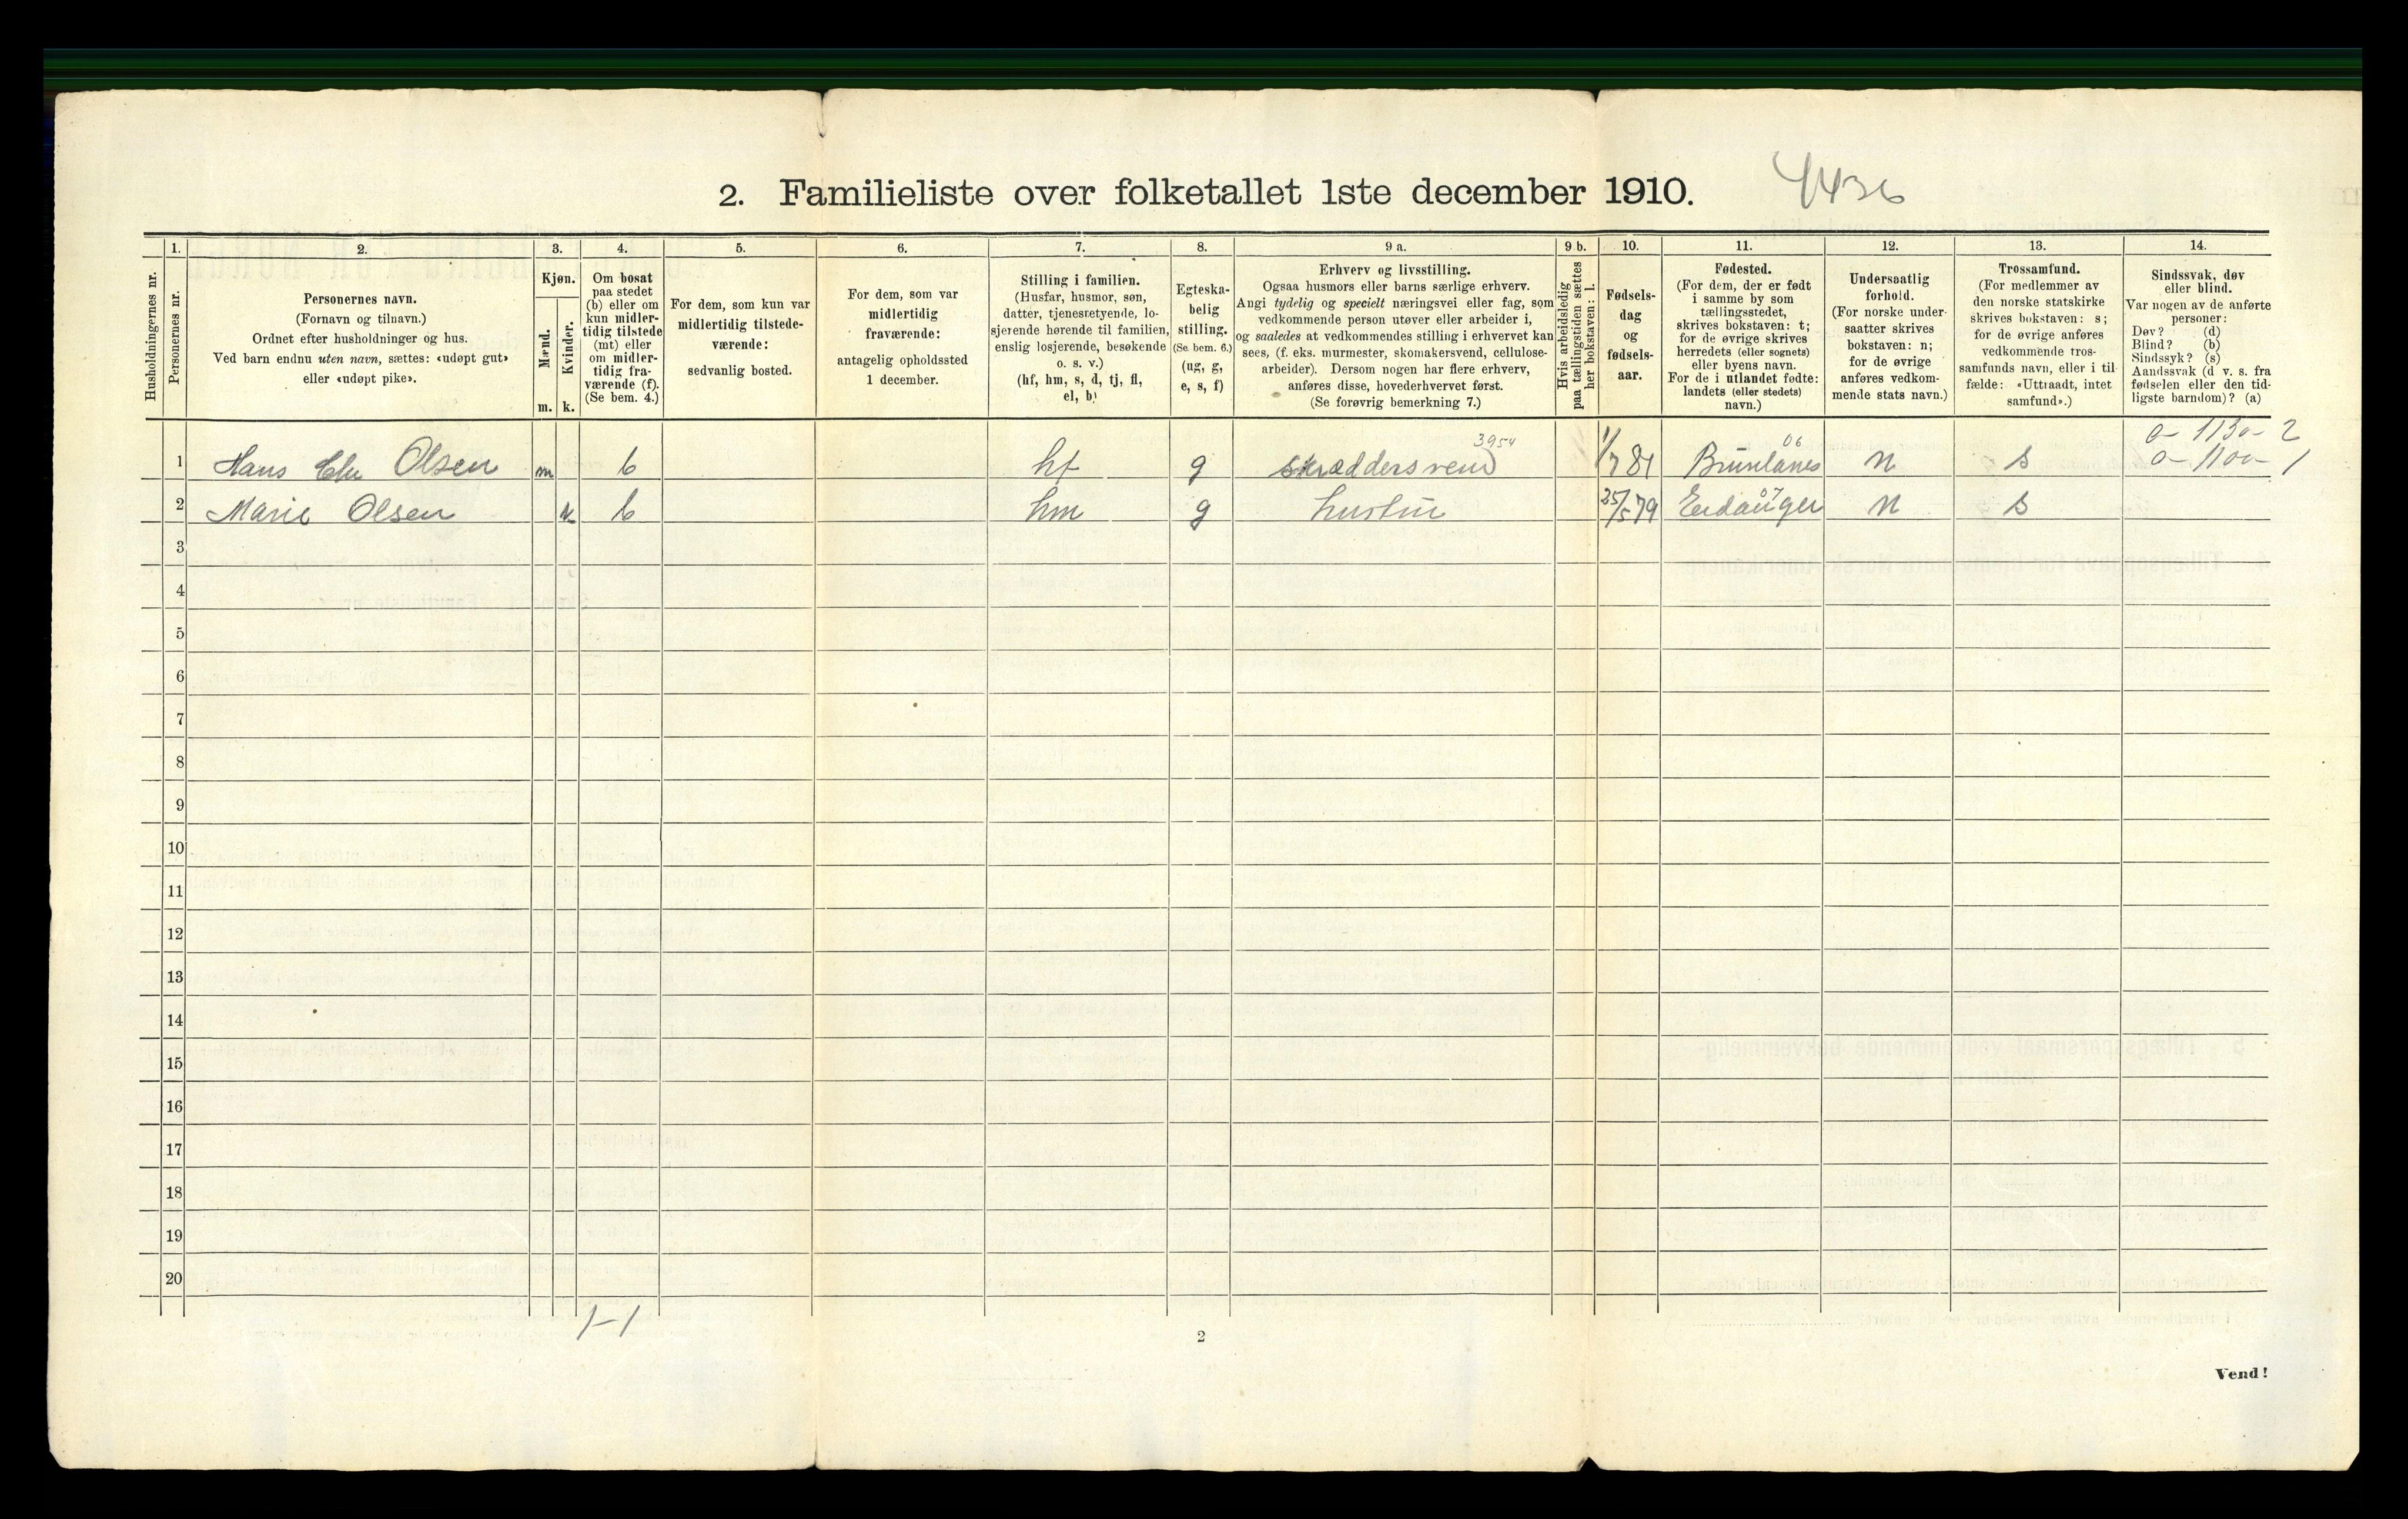 2. Familieliste over folketallet 1ste december 1910.
4436
Husholdningernes nr.
1.
Personernes nr.
2.
Personernes navn.
(Fornavn og tilnavn.)
Ordnet efter husholdninger og hus.
Ved barn endnu uten navn, sættes: «udøpt gut»
eller «udøpt pike».
3.
Kjøn.
Mænd.
m.
Kvinder.
k.
4.
Om bosat
paa stedet
(b) eller om
kun midler-
tidig tilstede
(mt) eller
om midler-
tidig fra-
værende (f).
(Se bem. 4.)
5.
For dem, som kun var
midlertidig tilstede-
værende:
sedvanlig bosted.
6.
For dem, som var
midlertidig
fraværende:
antagelig opholdssted
1 december.
7.
Stilling i familien.
(Husfar, husmor, søn,
datter, tjenestetyende, lo-
sjerende hørende til familien,
enslig losjerende, besøkende
o. s. v.)
(hf, hm, s, d, tj, fl,
el, b)
8.
Egteska-
belig
stilling.
(Se bem. 6.)
(ug, g,
e, s, f)
9 a.
Erhverv og livsstilling.
Ogsaa husmors eller barns særlige erhverv.
Angi tydelig og specielt næringsvei eller fag, som
vedkommende person utøver eller arbeider i,
og saaledes at vedkommendes stilling i erhvervet kan
sees, (f. eks. murmester, skomakersvend, cellulose-
arbeider). Dersom nogen har flere erhverv,
anføres disse, hovederhvervet først.
(Se forøvrig bemerkning 7.)
9 b.
Hvis arbeidsledig
paa tællingstiden sættes
her bokstaven: l.
10.
Fødsels-
dag
og
fødsels-
aar.
11.
Fødested.
(For dem, der er født
i samme by som
tællingsstedet,
skrives bokstaven: t;
for de øvrige skrives
herredets (eller sognets)
eller byens navn.
For de i utlandet fødte:
landets (eller stedets)
navn.)
12.
Undersaatlig
forhold.
(For norske under-
saatter skrives
bokstaven: n;
for de øvrige
anføres vedkom-
mende stats navn.)
13.
Trossamfund.
(For medlemmer av
den norske statskirke
skrives bokstaven: s;
for de øvrige anføres
vedkommende tros-
samfunds navn, eller i til
fælde: «Uttraadt, intet
samfund».)
14.
Sindssvak, døv
eller blind.
Var nogen av de anførte
personer:
Døv? (d)
Blind? (b)
Sindssyk? (s)
Aandssvak (d v. s. fra
fødselen eller den tid-
ligste barndom)? (a)
3954 06 0-1130-2
1 Hans Chr Olsen m b hf g skræddersvend 1/7 81 Brunlanes n s 0-1100-1
07
2 Marie Olsen k b hm g hustru 25/5 79 Eidanger n s
3
4
5
6
7
8
9
10
11
12
13
14
15
16
17
18
19
20
1-1
2
Vend!